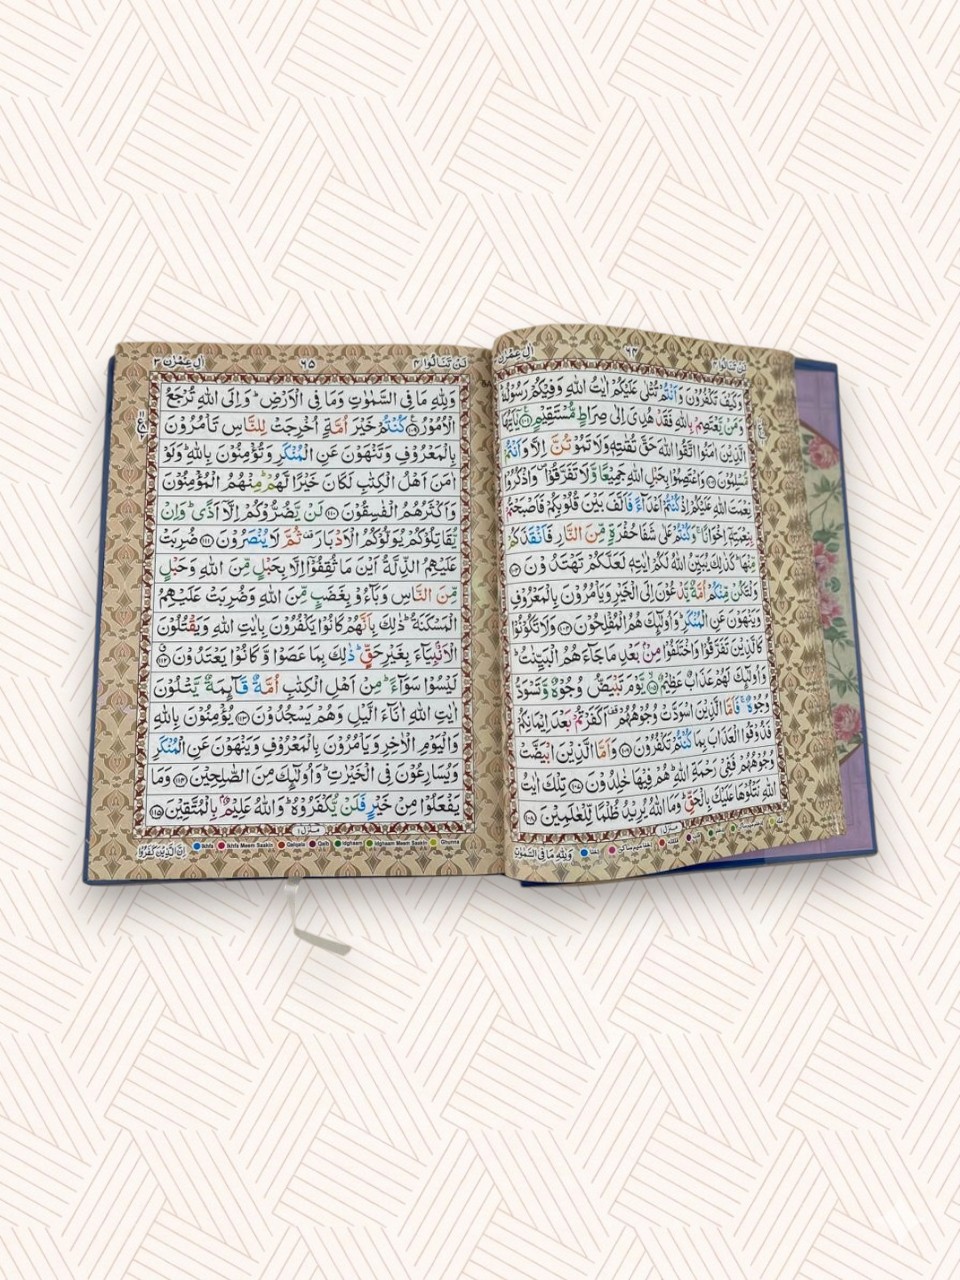 لن تنالوا ٤
٦٤
اٰل عمرٰن
وَكَيْفَ تَكْفُرُوْنَ وَاَنْتُمْ تُتْلٰى عَلَيْكُمْ اٰيٰتُ اللّٰهِ وَفِيْكُمْ رَسُوْلُهٗ
وَمَنْ يَّعْتَصِمْ بِاللّٰهِ فَقَدْ هُدِيَ اِلٰى صِرَاطٍ مُّسْتَقِيْمٍ ۝١٠١ يٰۤاَيُّهَا
الَّذِيْنَ اٰمَنُوا اتَّقُوا اللّٰهَ حَقَّ تُقٰتِهٖ وَلَا تَمُوْتُنَّ اِلَّا وَاَنْتُمْ
مُّسْلِمُوْنَ ۝١٠٢ وَاعْتَصِمُوْا بِحَبْلِ اللّٰهِ جَمِيْعًا وَّلَا تَفَرَّقُوْا وَاذْكُرُوْا
نِعْمَتَ اللّٰهِ عَلَيْكُمْ اِذْ كُنْتُمْ اَعْدَآءً فَاَلَّفَ بَيْنَ قُلُوْبِكُمْ فَاَصْبَحْتُمْ
بِنِعْمَتِهٖۤ اِخْوَانًا وَكُنْتُمْ عَلٰى شَفَا حُفْرَةٍ مِّنَ النَّارِ فَاَنْقَذَكُمْ
مِّنْهَا كَذٰلِكَ يُبَيِّنُ اللّٰهُ لَكُمْ اٰيٰتِهٖ لَعَلَّكُمْ تَهْتَدُوْنَ ۝١٠٣
وَلْتَكُنْ مِّنْكُمْ اُمَّةٌ يَّدْعُوْنَ اِلَى الْخَيْرِ وَيَاْمُرُوْنَ بِالْمَعْرُوْفِ
وَيَنْهَوْنَ عَنِ الْمُنْكَرِ وَاُولٰٓئِكَ هُمُ الْمُفْلِحُوْنَ ۝١٠٤ وَلَا تَكُوْنُوْا
كَالَّذِيْنَ تَفَرَّقُوْا وَاخْتَلَفُوْا مِنْۢ بَعْدِ مَا جَآءَهُمُ الْبَيِّنٰتُ
وَاُولٰٓئِكَ لَهُمْ عَذَابٌ عَظِيْمٌ ۝١٠٥ يَّوْمَ تَبْيَضُّ وُجُوْهٌ وَّتَسْوَدُّ
وُجُوْهٌ فَاَمَّا الَّذِيْنَ اسْوَدَّتْ وُجُوْهُهُمْ اَكَفَرْتُمْ بَعْدَ اِيْمَانِكُمْ
فَذُوْقُوا الْعَذَابَ بِمَا كُنْتُمْ تَكْفُرُوْنَ ۝١٠٦ وَاَمَّا الَّذِيْنَ ابْيَضَّتْ
وُجُوْهُهُمْ فَفِيْ رَحْمَةِ اللّٰهِ هُمْ فِيْهَا خٰلِدُوْنَ ۝١٠٧ تِلْكَ اٰيٰتُ
اللّٰهِ نَتْلُوْهَا عَلَيْكَ بِالْحَقِّ وَمَا اللّٰهُ يُرِيْدُ ظُلْمًا لِّلْعٰلَمِيْنَ ۝١٠٨
منزل ١
وَلِلّٰهِ مَا فِي السَّمٰوٰتِ
لن تنالوا ٤
٦٥
اٰل عمرٰن ٣
وَلِلّٰهِ مَا فِي السَّمٰوٰتِ وَمَا فِي الْاَرْضِ وَاِلَى اللّٰهِ تُرْجَعُ
الْاُمُوْرُ ۝١٠٩ كُنْتُمْ خَيْرَ اُمَّةٍ اُخْرِجَتْ لِلنَّاسِ تَاْمُرُوْنَ
بِالْمَعْرُوْفِ وَتَنْهَوْنَ عَنِ الْمُنْكَرِ وَتُؤْمِنُوْنَ بِاللّٰهِ وَلَوْ
اٰمَنَ اَهْلُ الْكِتٰبِ لَكَانَ خَيْرًا لَّهُمْ مِنْهُمُ الْمُؤْمِنُوْنَ
وَاَكْثَرُهُمُ الْفٰسِقُوْنَ ۝١١٠ لَنْ يَّضُرُّوْكُمْ اِلَّاۤ اَذًى وَاِنْ
يُّقَاتِلُوْكُمْ يُوَلُّوْكُمُ الْاَدْبَارَ ثُمَّ لَا يُنْصَرُوْنَ ۝١١١ ضُرِبَتْ
عَلَيْهِمُ الذِّلَّةُ اَيْنَ مَا ثُقِفُوْۤا اِلَّا بِحَبْلٍ مِّنَ اللّٰهِ وَحَبْلٍ
مِّنَ النَّاسِ وَبَآءُوْ بِغَضَبٍ مِّنَ اللّٰهِ وَضُرِبَتْ عَلَيْهِمُ
الْمَسْكَنَةُ ذٰلِكَ بِاَنَّهُمْ كَانُوْا يَكْفُرُوْنَ بِاٰيٰتِ اللّٰهِ وَيَقْتُلُوْنَ
الْاَنْۢبِيَآءَ بِغَيْرِ حَقٍّ ذٰلِكَ بِمَا عَصَوْا وَّكَانُوْا يَعْتَدُوْنَ ۝١١٢
لَيْسُوْا سَوَآءً مِنْ اَهْلِ الْكِتٰبِ اُمَّةٌ قَآئِمَةٌ يَّتْلُوْنَ
اٰيٰتِ اللّٰهِ اٰنَآءَ الَّيْلِ وَهُمْ يَسْجُدُوْنَ ۝١١٣ يُؤْمِنُوْنَ بِاللّٰهِ
وَالْيَوْمِ الْاٰخِرِ وَيَاْمُرُوْنَ بِالْمَعْرُوْفِ وَيَنْهَوْنَ عَنِ الْمُنْكَرِ
وَيُسَارِعُوْنَ فِي الْخَيْرٰتِ وَاُولٰٓئِكَ مِنَ الصّٰلِحِيْنَ ۝١١٤ وَمَا
يَفْعَلُوْا مِنْ خَيْرٍ فَلَنْ يُّكْفَرُوْهُ وَاللّٰهُ عَلِيْمٌۢ بِالْمُتَّقِيْنَ ۝١١٥
منزل ١
Ikhfa Ikhfa Meem Saakin Qalqala Qalb Idghaam Idghaam Meem Saakin Ghunna
اِنَّ الَّذِيْنَ كَفَرُوْا